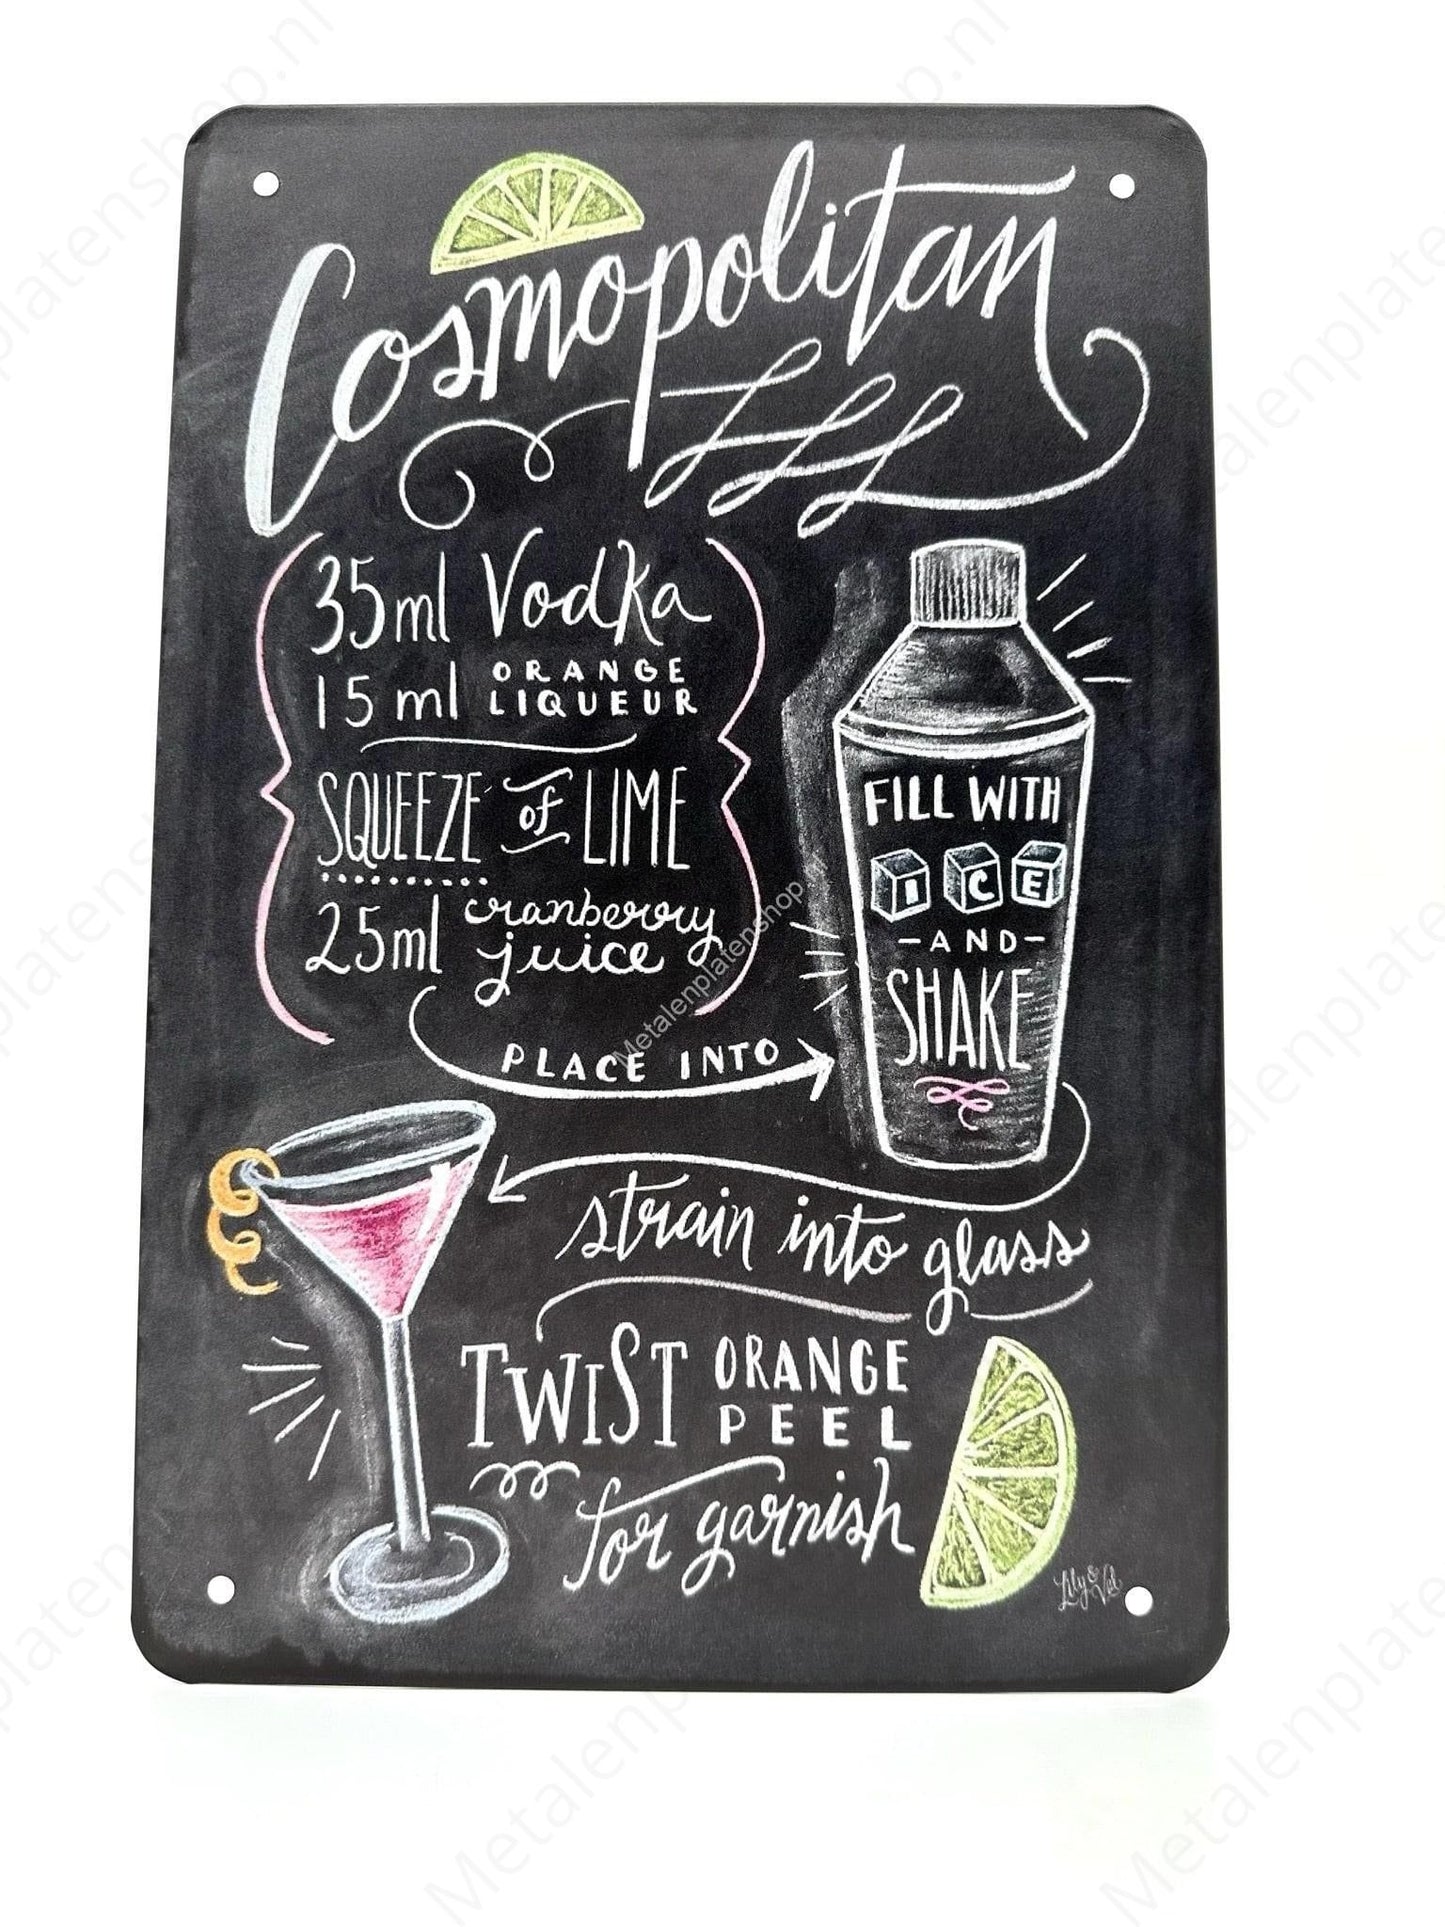 Cosmopolitan
35ml Vodka
15ml ORANGE
LIQUEUR
SQUEEZE of LIME
25ml cranberry
juice
PLACE INTO
FILL WITH
ICE
-AND-
SHAKE
strain into glass
TWIST ORANGE
PEEL
for garnish
Lily & Val
Metalenplatenshop
Metalenplatenshop.nl